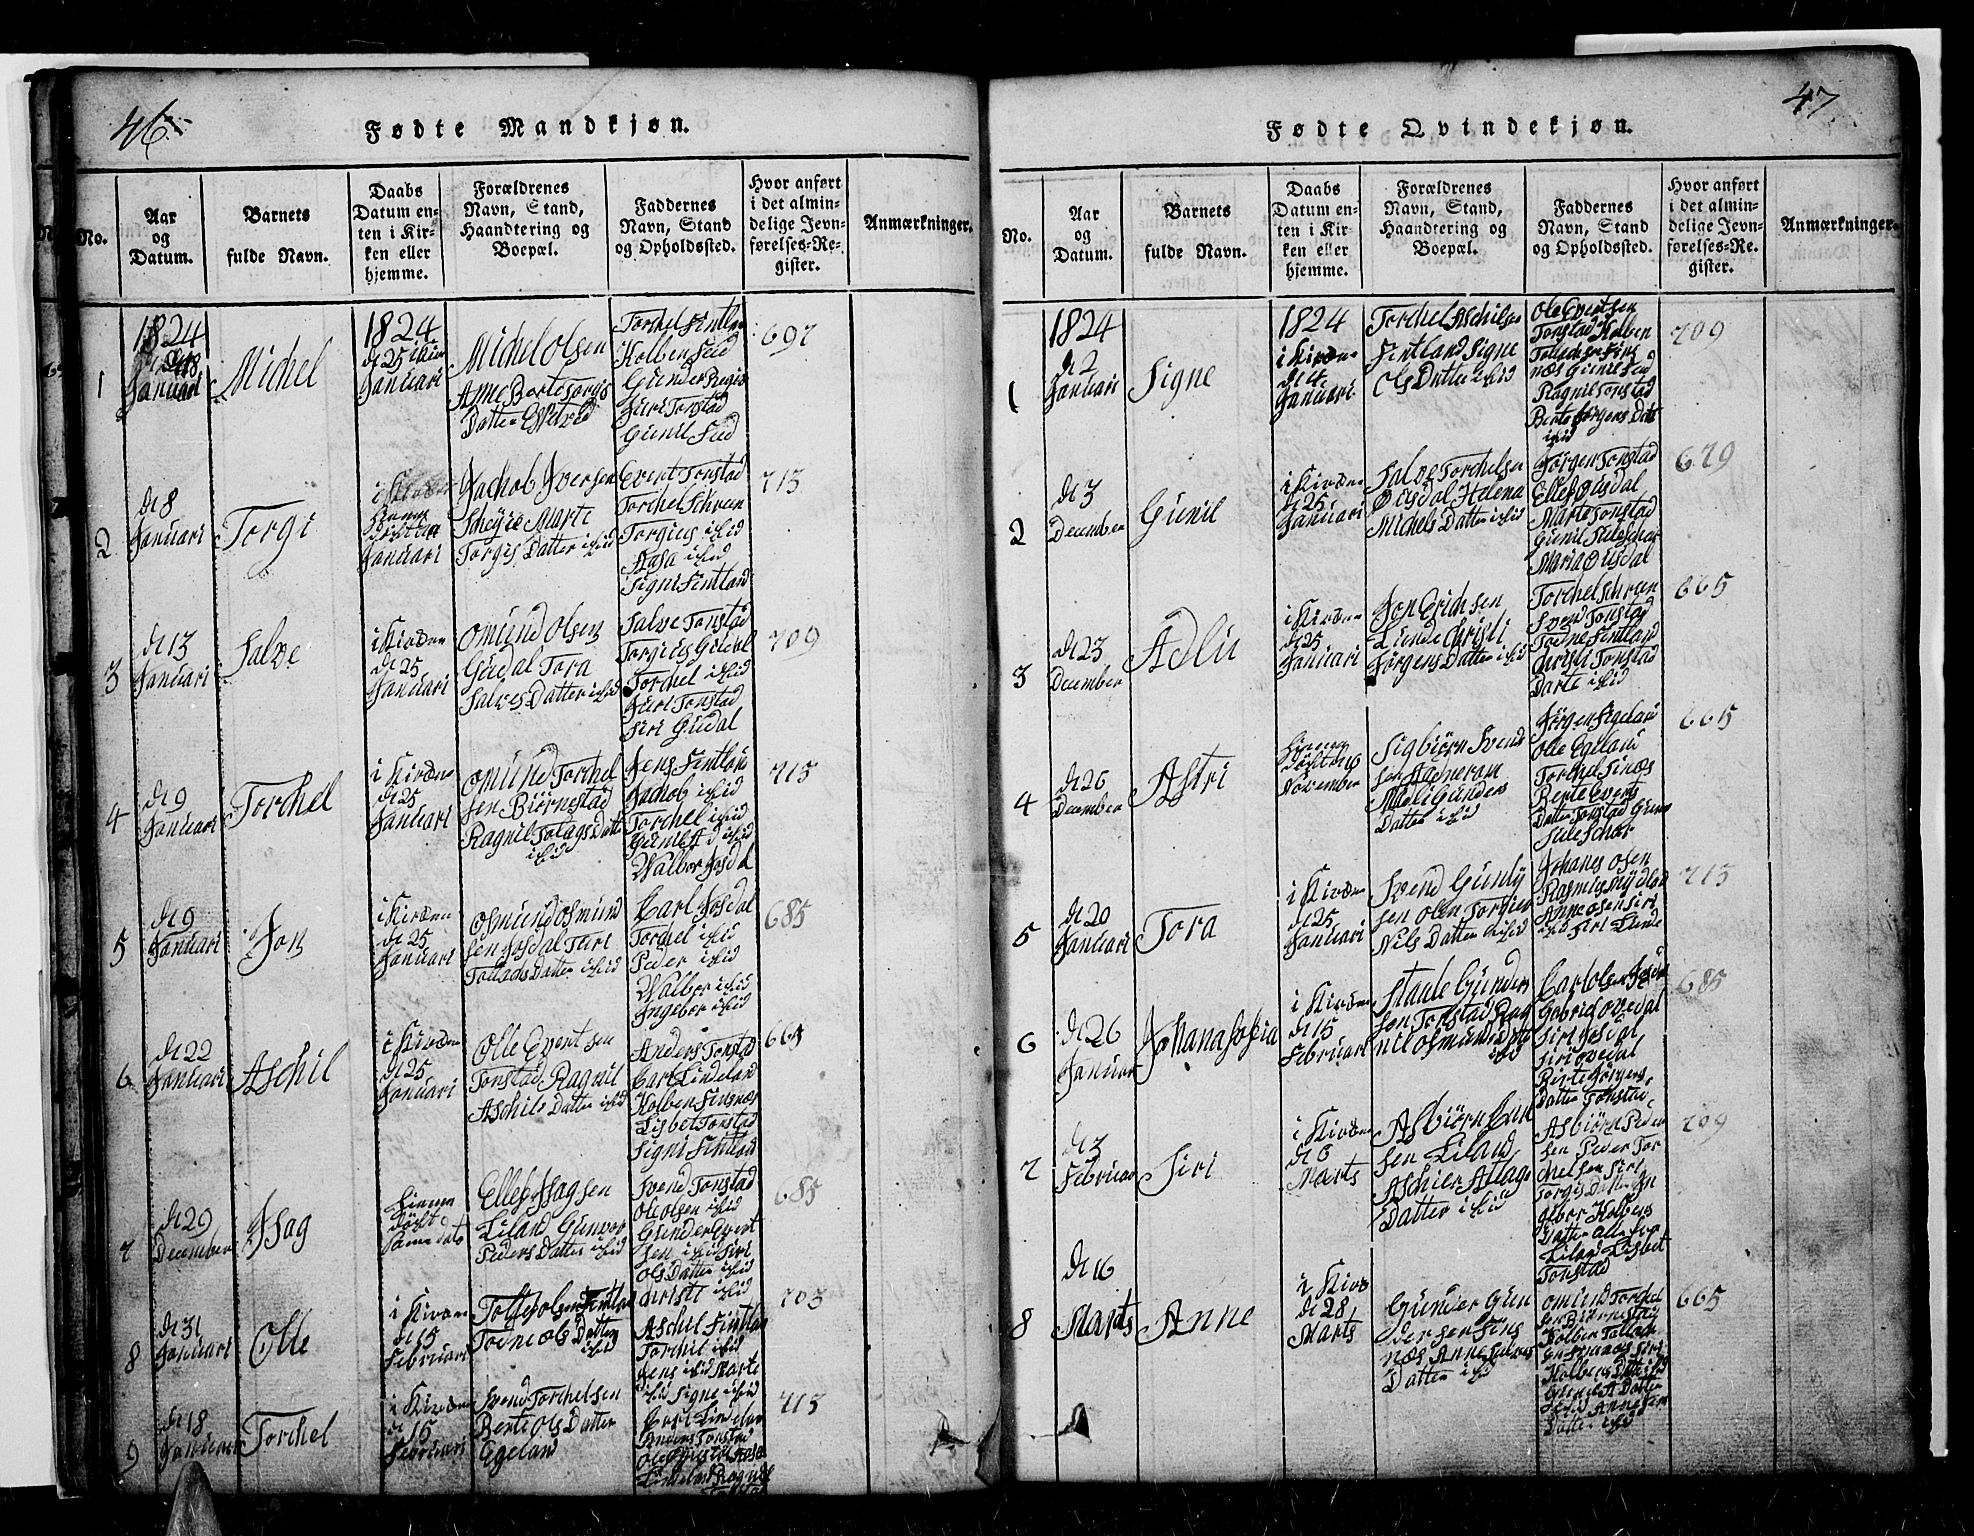 46
Fødte Mandkjøn.
No.
Aar
og
Datum.
Barnets
fulde Navn.
Daabs
Datum en-
ten i Kir-
ken eller
hjemme.
Forældrenes
Navn, Stand,
Haandtering og
Boepæl.
Faddernes
Navn, Stand
og Opholdssted.
Hvor anført
i det almin-
delige Jevn-
førelses-Re-
gister.
Anmærkninger.
1
1824
Januari
Michel
1824
d 25 i Kir
Januari
Michel Olsen
Anne Berte Torgis
Datter
Torchel Fintlan
Kolben Seid
Gunder Regis
Juri Tonstad
Gunil Seid
697
2
d 8
Januari
Torgi
Januari
Jachob Iversen
Marte
Torgis Datter ibid
Event Tonstad
Torchel Schreen
Torgius ibid
Aasa ibid
Signi Fintland
713
3
d 13
Januari
Salve
i Kircken
d 25
Januari
Omund Olsen
Gudal Tora
Salves Datter ibid
Salve Tonstad
Torgius Gudal
Torchel ibid
Juri Tonstad
Siri Gudal
709
4
d 9
Januari
Torchel
i Kircken
d 25
Januari
Omund Torchel
sen Biørnestad
Ragnil Tolags Datter
ibid
Jens Fintlan
Jachob ibid
Torchel ibid
Gunil ibid
Valbor Josdal
715
5
d 9
Januari
Jon
i Kircken
d 25
Januari
Osmund Osmund
sen Josdal Juri
Tollachs Datter ibid
Carl Josdal
Torchel ibid
Peder ibid
Valbor ibid
Ingebor ibid
685
6
d 22
Januari
Aschil
i Kircken
d 25
Januari
Olle Event sen
Tonstad Ragnil
Aschils Datter ibid
Anders Tonstad
Carl Lindeland
Kolben Finsnæs
Lisbet Tonstad
Signi Fintlan
665
7
d 29
December
Isag
døbt
Ellef Isag sen
Liland Gunvor
Peders Datter ibid
Svend Tonstad
Ole Olsen ibid
Gunder Event
sen ibid Siri
Ols Datter ibid
Christi ibid
685
8
d 31
Januari
Olle
i Kircken
d 15
Februari
Tollef Olsen Fintlan
Torne Ols Datter
ibid
Aschil Fintlan
Torchil ibid
Jens ibid Marte
ibid Signe ibid
703
9
d 18
Januari
Torchel
i Kircken
d 15
Februari
Svend Torchelsen
Berte Ols Datter
Egeland
Carl Lindelan
Anders Tonstad
Lindeland Ragnil
Tonstad
713
47
Fødte Qvindekjøn.
No.
Aar
og
Datum.
Barnets
fulde Navn.
Daabs
Datum en-
ten i Kir-
ken eller
hjemme.
Forældrenes
Navn, Stand,
Haandtering og
Boepæl.
Faddernes
Navn, Stand
og Opholdssted.
Hvor anført
i det almin-
delige Jevn-
førelses-Re-
gister.
Anmærkninger.
1
1824
d 2
Januari
Signe
1824
i Kircken
d 4
Januari
Torchel Aschilsen
Fintland Signe
Ols Datter ibid
Ole Eventsen
Tonstad Kolben
Tollachsen Fins
næs Gunil Seid
Ragnil Tonstad
Berte Jørgens Dat
ibid
709
2
d 3
December
Gunil
i Kircken
d 25
Januari
Salve Torchelsen
Øvisdal Helena
Michels Datter ibid
Jørgen Tonstad
Ellef Øvisdal
Marte Tonstad
Gunil
Maria Øvisdal
679
3
d 23
December
Adlu
i Kircken
d 25
Januari
Jon Erichsen
Lunde Christi
Jørgens Datter ibid
Torchel Schreen
Svend Tonstad
Torne Fintland
Christi Tonstad
Darte ibid
665
4
d 26
December
Astri
November
Sigbiørn Svend
sen
Gunders
Datter ibid
Jørgen Sigeland
Olle
Torchel Finæs
Berte Evens
Datter Tonstad Gunil
665
5
d 20
Januari
Tora
i Kircken
d 25
Januari
Svend Gunly
sen Osen Torgier
Nils Datter ibid
Johanes Osen
Rasmus
Anne Osen Siri
ibid Siri Lunde
713
6
d 26
Januar
Johana Sofia
i Kircken
d 15
Februari
Staale Gunder
sen Tonstad Rag
nil Osmunds Datter
ibid
Carl Olsen Josdal
Gabriel Ovedal
Siri Josdal
Siri Ovedal
Berte Jørgens
Datter Tonstad,
685
7
d 3
Februari
Siri
i Kircken
d 6
Marts
Asbiørn
sen Liland
Aschier Atlags
Datter ibid
Asbiørn Peder
sen Peder Tor
chelsen Siri
Torgis Datter In
gebor Kolbens
Datter alle fra
Liland Lisbet
Tonstad
709
8
d 16
Marts
Anne
i Kirc
d 28
Marts
Gunder Gun
dersen Fins
næs Anne Salves
Datter ibid
Omund Torchel
sen Biørnestad
Kolben Tollach
sen Finsnæs Siri
Kolbens Datter ibid
Datter ibid
665